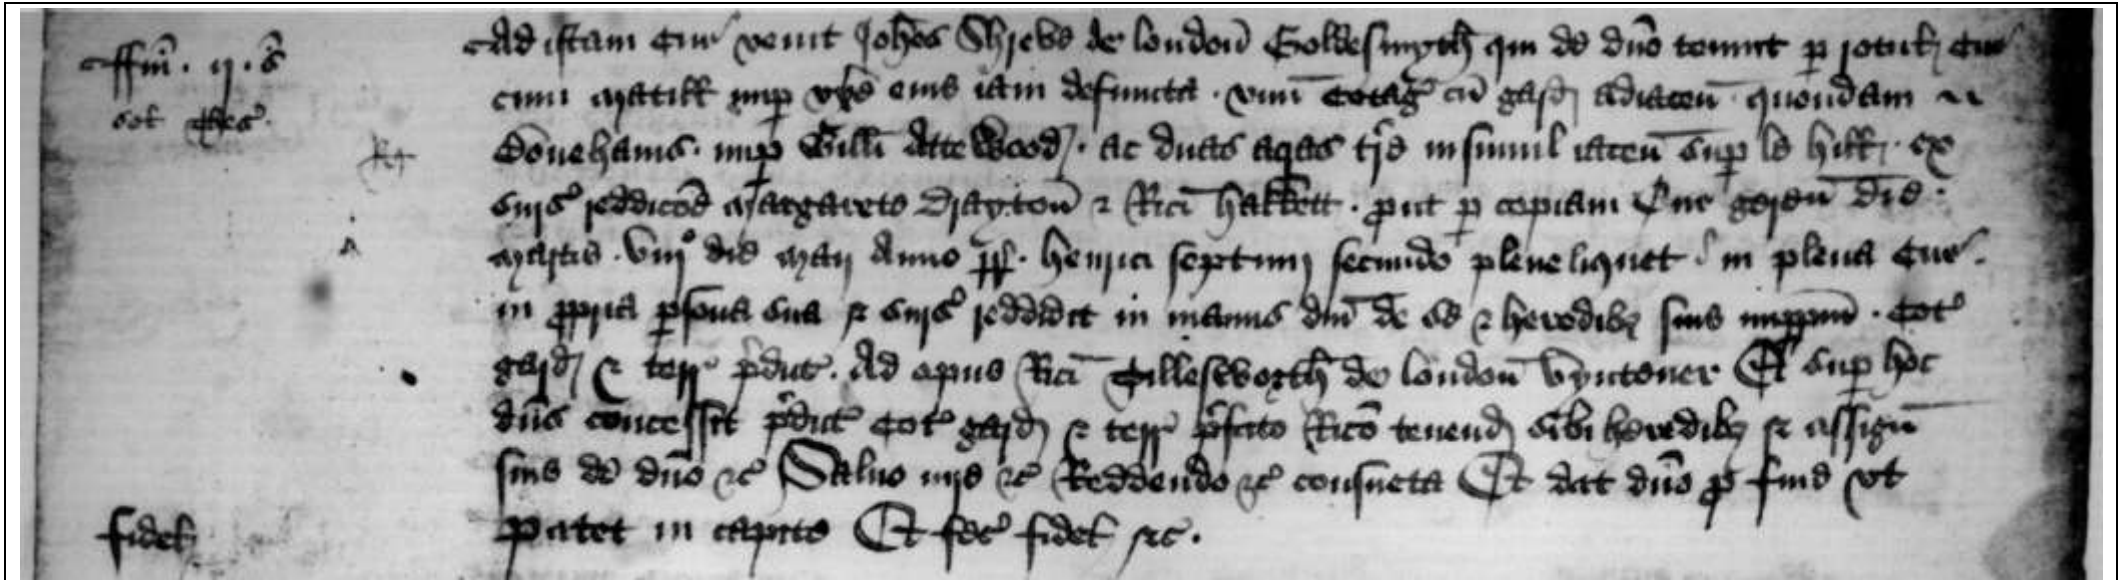 Ad istam Cur venit Johes Shreve de london Goldesmyth qui de dno tenuit p rotul Cur
ffin . ij . s
cum Matill nup vxe eius iam defuncta . vnu Cotag cu gard adiacen quondam
sol
Donehams . nup Willi Atte Wood . ac duas acras tre insimul iacen sup le hill . ex
sursu reddicoe Margarete Drayton & Rici Hakkett . put p copiam Cur geren Dat
Martis . viij° die Maij Anno rr . Henrici septimi secundo plene liquet in plena Cur .
in ppria psona sua & sursu reddidit in manus dni de se & heredibz suis imppm . Cot
gard & terr pdict . Ad opus Rici Tillesworth de london vyntener Et sup hoc
dns concessit pdict Cot gard & terr pfato Rico tenend sibi heredibz & assign
suis de dno &c Salvo iure &c Reddendo &c consueta Et dat dno p fine vt
patet in capite Et fec fidel &c .
fidel